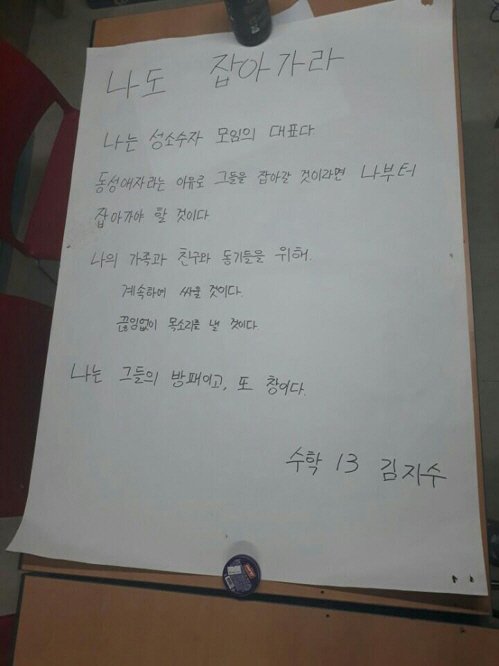 나도 잡아가라
나는 성소수자 모임의 대표다
동성애자라는 이유로 그들을 잡아갈 것이라면 나부터
잡아가야 할 것이다
나의 가족과 친구와 동기들을 위해.
계속하여 싸울 것이다.
끊임없이 목소리를 낼 것이다
나는 그들의 방패이고, 또 창이다.
수학 13 김지수